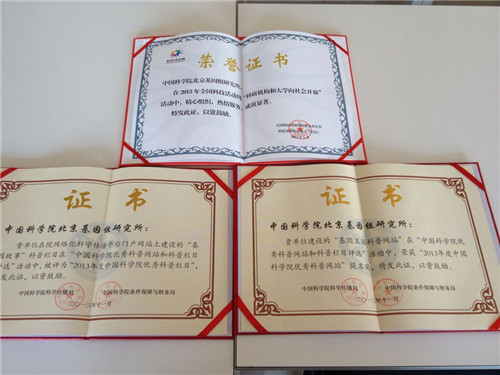 荣誉证书
中国科学院北京基因组研究所：
在2013年全国科技活动周"科研机构和大学向社会开放"
活动中，精心组织，热情服务，成效显著。
特发此证，以资鼓励。
证书
中国科学院北京基因组研究所：
贵单位在院网络化科学传播平台门户网站上建设的"基
因故事"科普栏目在"中国科学院优秀科普网站和科普栏目
评选"活动中，被评为"2013年度中国科学院优秀科普栏目"，
特发此证，以资鼓励。
中国科学院科学传播局
中国科学院条件保障与财务局
二〇一三年十一月
证书
中国科学院北京基因组研究所：
贵单位建设的"基因 科普网站"在"中国科学院优
秀科普网站和科普栏目评选"活动中，荣获"2013年度中
国科学院优秀科普网站"提名奖，特发此证，以资鼓励。
中国科学院科学传播局
中国科学院条件保障与财务局
二〇一三年十一月